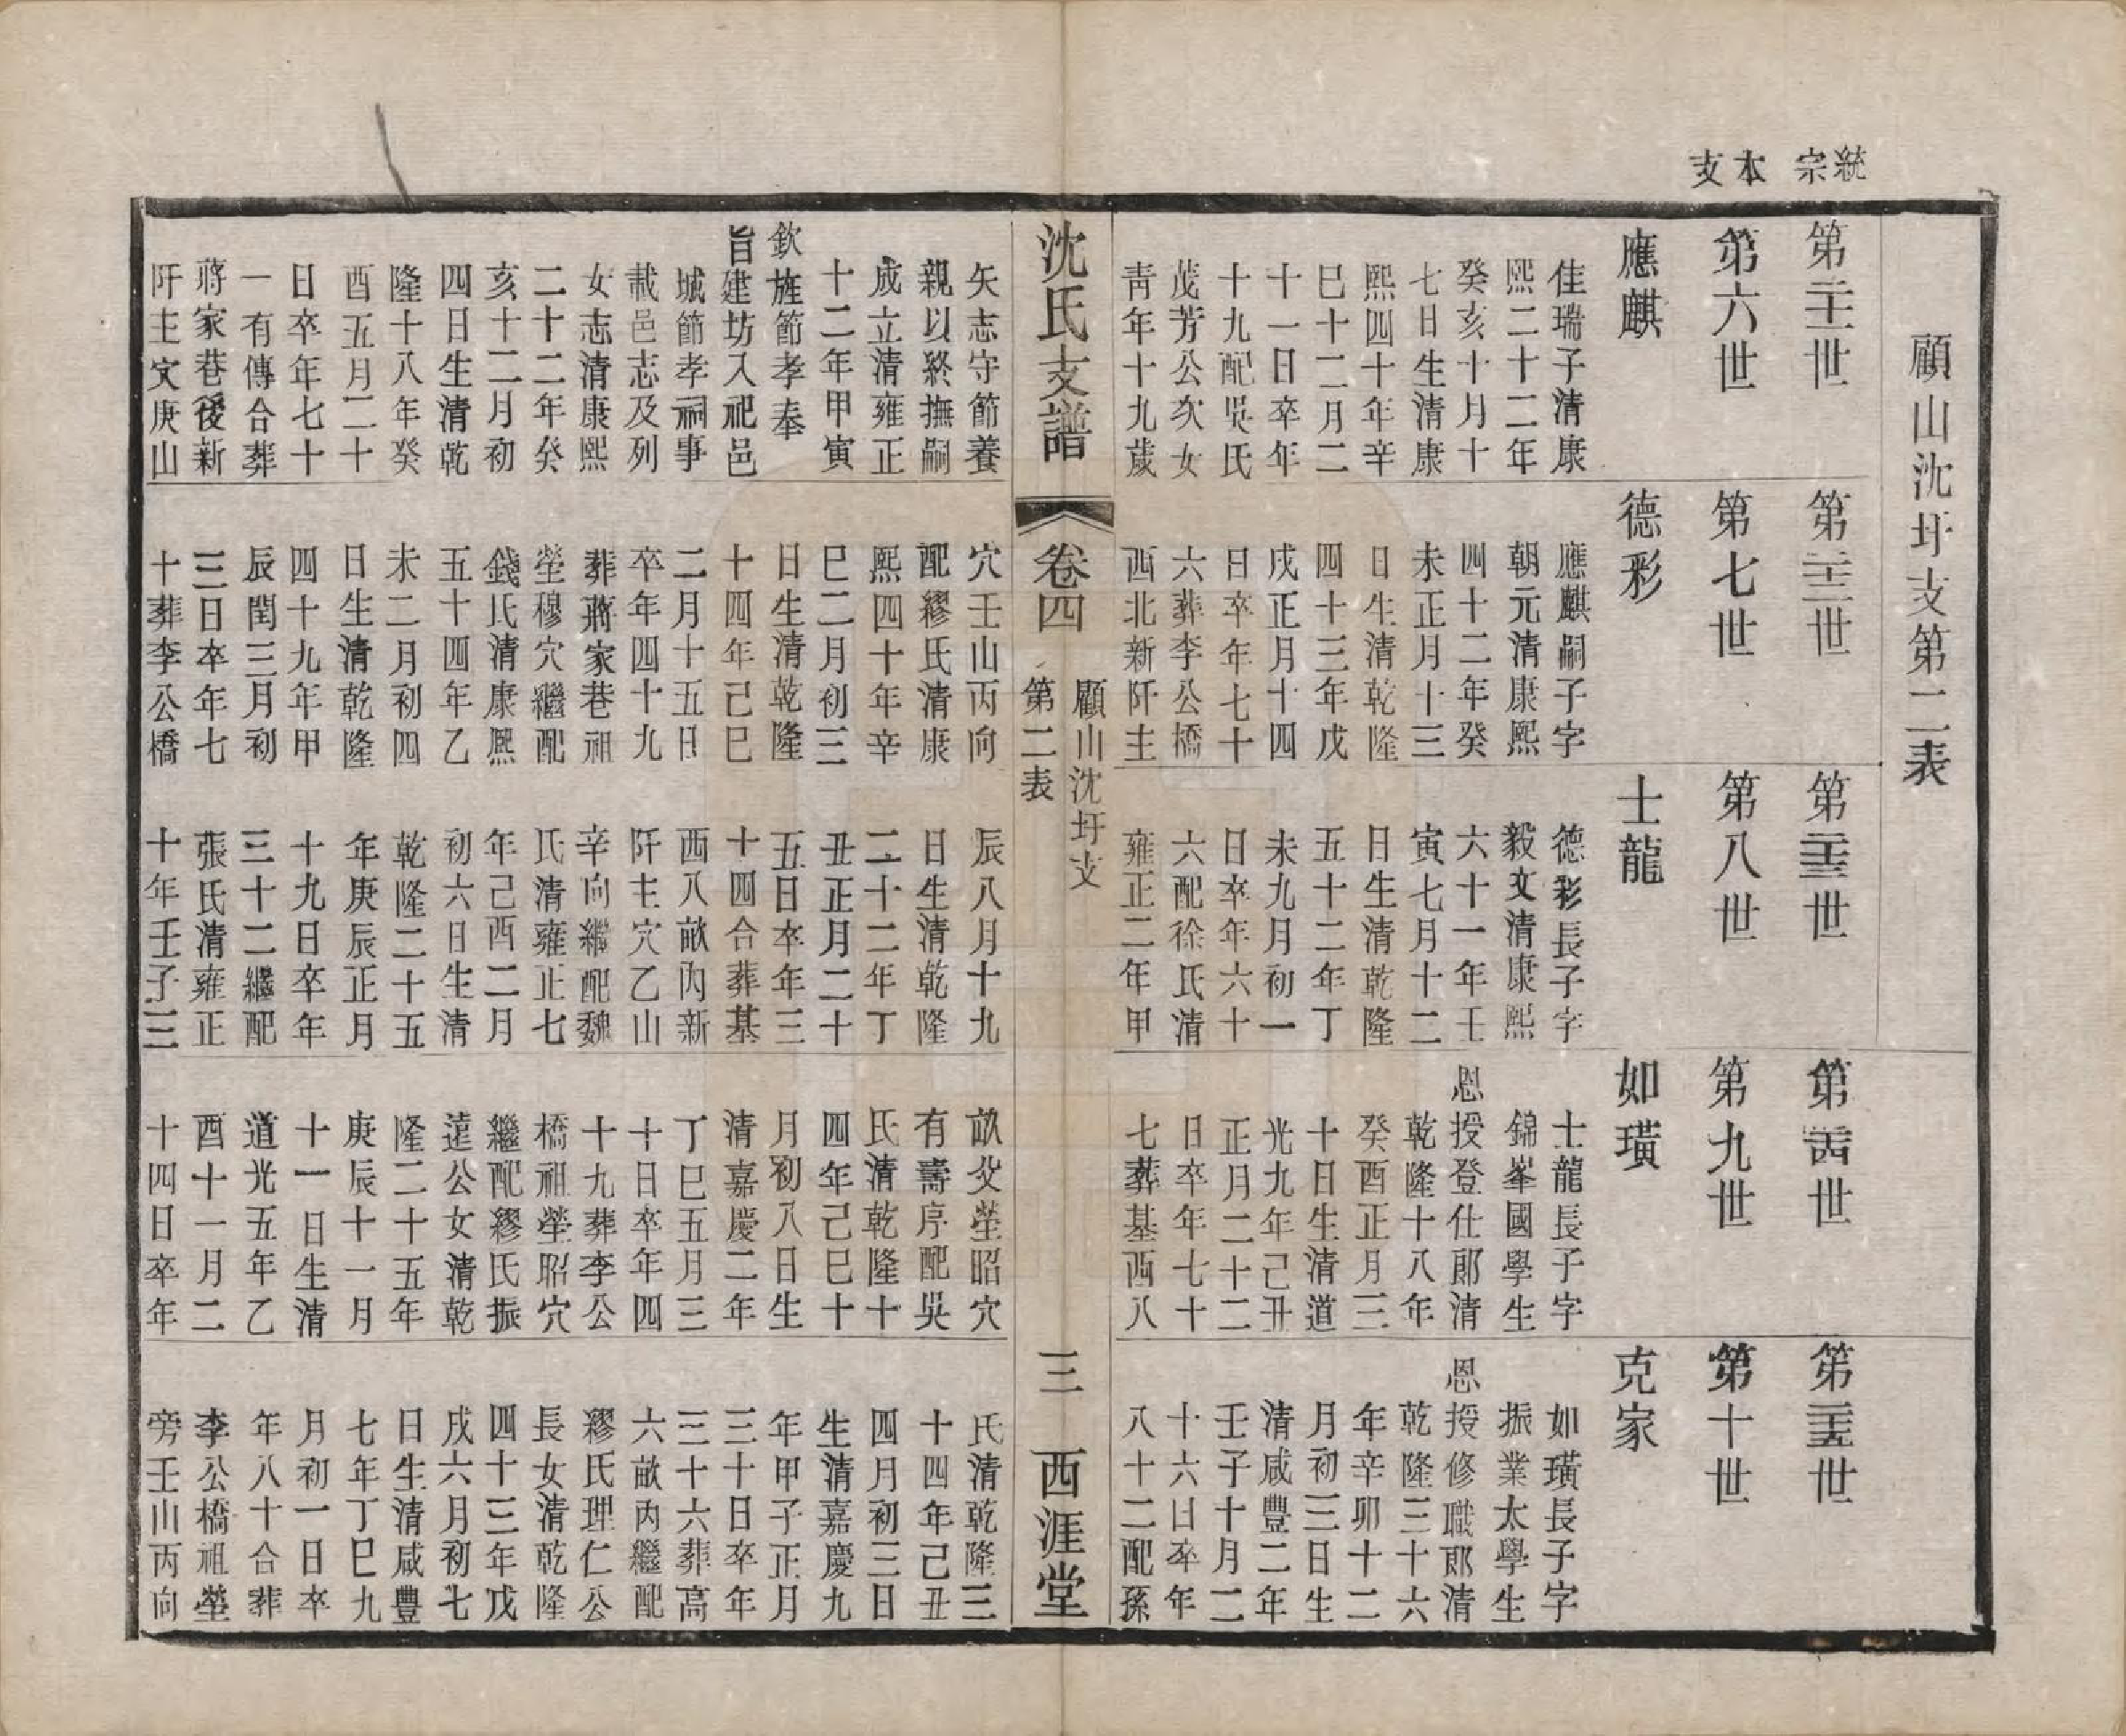 統宗
本支
顧山沈圩支第二表
第二十一世
第六世
應麒
佳瑞子清康
熙二十二年
癸亥十月十
七日生清康
熙四十年辛
巳十二月二
十一日卒年
十九配吳氏
茂芳公次女
青年十九歲
矢志守節養
親以終撫嗣
成立清雍正
十二年甲寅
欽旌節孝奉
旨建坊入祀邑
城節孝祠事
載邑志及列
女志清康熙
二十二年癸
亥十二月初
四日生清乾
隆十八年癸
酉五月二十
日卒年七十
一有傳合葬
蔣家巷後新
阡主穴庚山
第二十二世
第七世
德彩
應麒嗣子字
朝元清康熙
四十二年癸
未正月十三
日生清乾隆
四十三年戊
戌正月十四
日卒年七十
六葬李公橋
西北新阡主
穴壬山丙向
配繆氏清康
熙四十年辛
巳二月初三
日生清乾隆
十四年己巳
二月十五日
卒年四十九
葬蔣家巷祖
塋穆穴繼配
錢氏清康熙
五十四年乙
未二月初四
日生清乾隆
四十九年甲
辰閏三月初
三日卒年七
十葬李公橋
第二十三世
第八世
士龍
德彩長子字
毅文清康熙
六十一年壬
寅七月十二
日生清乾隆
五十二年丁
未九月初一
日卒年六十
六配徐氏清
雍正二年甲
辰八月十九
日生清乾隆
二十二年丁
丑正月二十
五日卒年三
十四合葬基
西八畝內新
阡主穴乙山
辛向繼配魏
氏清雍正七
年己酉二月
初六日生清
乾隆二十五
年庚辰正月
十九日卒年
三十二繼配
張氏清雍正
十年壬子三
第二十四世
第九世
如璜
士龍長子字
錦峯國學生
恩授登仕郎清
乾隆十八年
癸酉正月三
十日生清道
光九年己丑
正月二十二
日卒年七十
七葬基西八
畝父塋昭穴
有壽序配吳
氏清乾隆十
四年己巳十
月初八日生
清嘉慶二年
丁巳五月三
十日卒年四
十九葬李公
橋祖塋昭穴
繼配繆氏振
遠公女清乾
隆二十五年
庚辰十一月
十一日生清
道光五年乙
酉十一月二
十四日卒年
第二十五世
第十世
克家
如璜長子字
振業太學生
恩授修職郎清
乾隆三十六
年辛卯十二
月初三日生
清咸豐二年
壬子十月二
十六日卒年
八十二配孫
氏清乾隆三
十四年己丑
四月初三日
生清嘉慶九
年甲子正月
三十日卒年
三十六葬高
六畝丙繼配
繆氏理仁公
長女清乾隆
四十三年戊
戌六月初七
日生清咸豐
七年丁巳九
月初一日卒
年八十合葬
李公橋祖塋
旁壬山丙向
沈氏支譜
卷四
顧山沈圩支
第二表
三
西涯堂